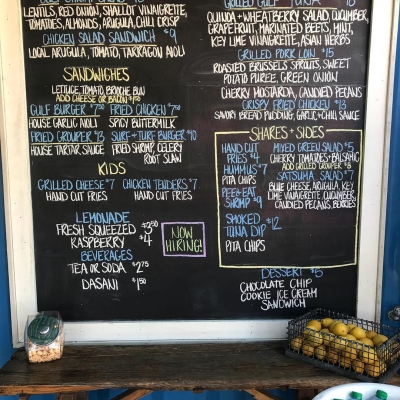 LENTILS, RED ONION, SHALLOT VINAIGRETTE,
TOMATOES, ALMONDS, ARUGULA, CHILI CRISP
CHICKEN SALAD SANDWICH $9
LOCAL ARUGULA, TOMATO, TARRAGON AIOLI
SANDWICHES
LETTUCE, TOMATO, BRIOCHE BUN
ADD CHEESE OR BACON
GULF BURGER $7.50 FRIED CHICKEN $7.50
HOUSE GARLIC AIOLI SPICY BUTTERMILK
FRIED GROUPER $13 SURF+TURF BURGER $10
HOUSE TARTAR SAUCE FRIED SHRIMP, CELERY
ROOT SLAW
KIDS
GRILLED CHEESE $7 CHICKEN TENDERS $7
HAND CUT FRIES HAND CUT FRIES
LEMONADE
FRESH SQUEEZED $3.50
RASPBERRY $4
BEVERAGES
TEA OR SODA $2.75
DASANI $1.50
NOW
HIRING!
GRILLED TUNA
QUINOA + WHEATBERRY SALAD, CUCUMBER,
GRAPEFRUIT, MARINATED BEETS, MINT,
KEY LIME VINAIGRETTE, ASIAN HERBS
GRILLED PORK LOIN $15
ROASTED BRUSSELS SPROUTS, SWEET
POTATO PUREE, GREEN ONION
CHERRY MOSTARDA, CANDIED PECANS
CRISPY FRIED CHICKEN $13
SAVORY BREAD PUDDING, GARLIC+CHILI SAUCE
SHARES + SIDES
HAND CUT
FRIES $4
HUMMUS $7
PITA CHIPS
PEEL+EAT
SHRIMP $9
SMOKED
TUNA DIP $12
PITA CHIPS
MIXED GREEN SALAD $5
CHERRY TOMATOES+BALSAMIC
ADD GRILLED GROUPER $8
SATSUMA SALAD $7
BLUE CHEESE, ARUGULA, KEY
LIME VINAIGRETTE, CUCUMBER,
CANDIED PECANS, BERRIES
DESSERT $5
CHOCOLATE CHIP
COOKIE ICE CREAM
SANDWICH